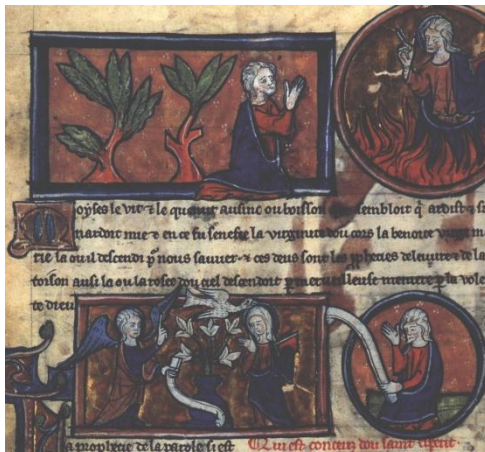 Moyses le vit & le quenut ausinc ou boisson qui sembloit q ardist & si
nardoit mie & en ce fu senefie la virginite dou cors la benoite virge m
rie la ou il descendi p nous sauuer & ces deus sont les de leuure & de la
toison ausi la ou la rosee dou ciel descendoit p merueilleuse meniere p la vole
te dieu
La prophecie de la parole si est Qui est conceuz dou saint esperit.